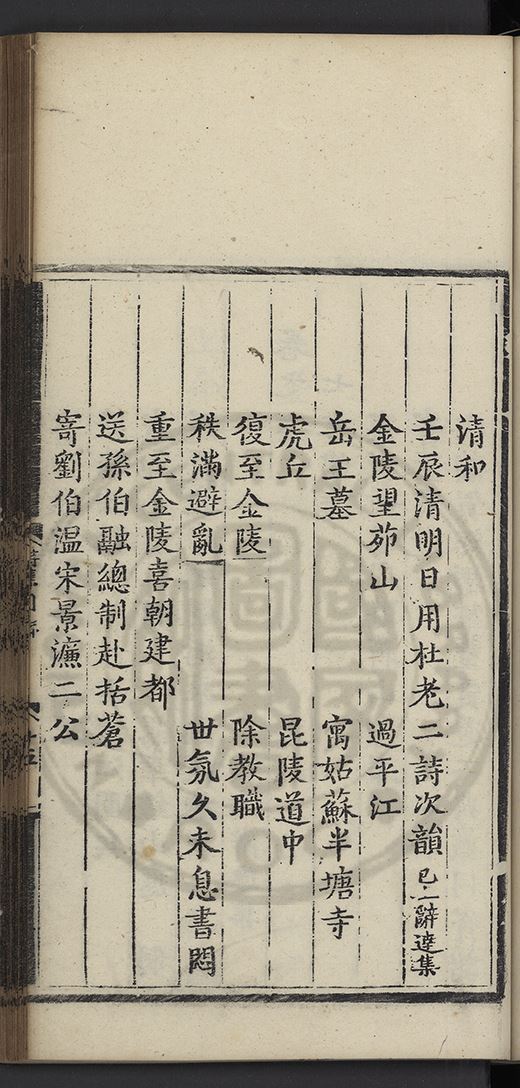 清和
壬辰清明日用杜老二詩次韻 已上辭達集
金陵望茆山 過平江
岳王墓 寓姑蘇半塘寺
虎丘 昆陵道中
復至金陵 除教職
秩滿避亂 世氛久未息書悶
重至金陵喜朝建都
送孫伯融總制赴括蒼
寄劉伯溫宋景濂二公